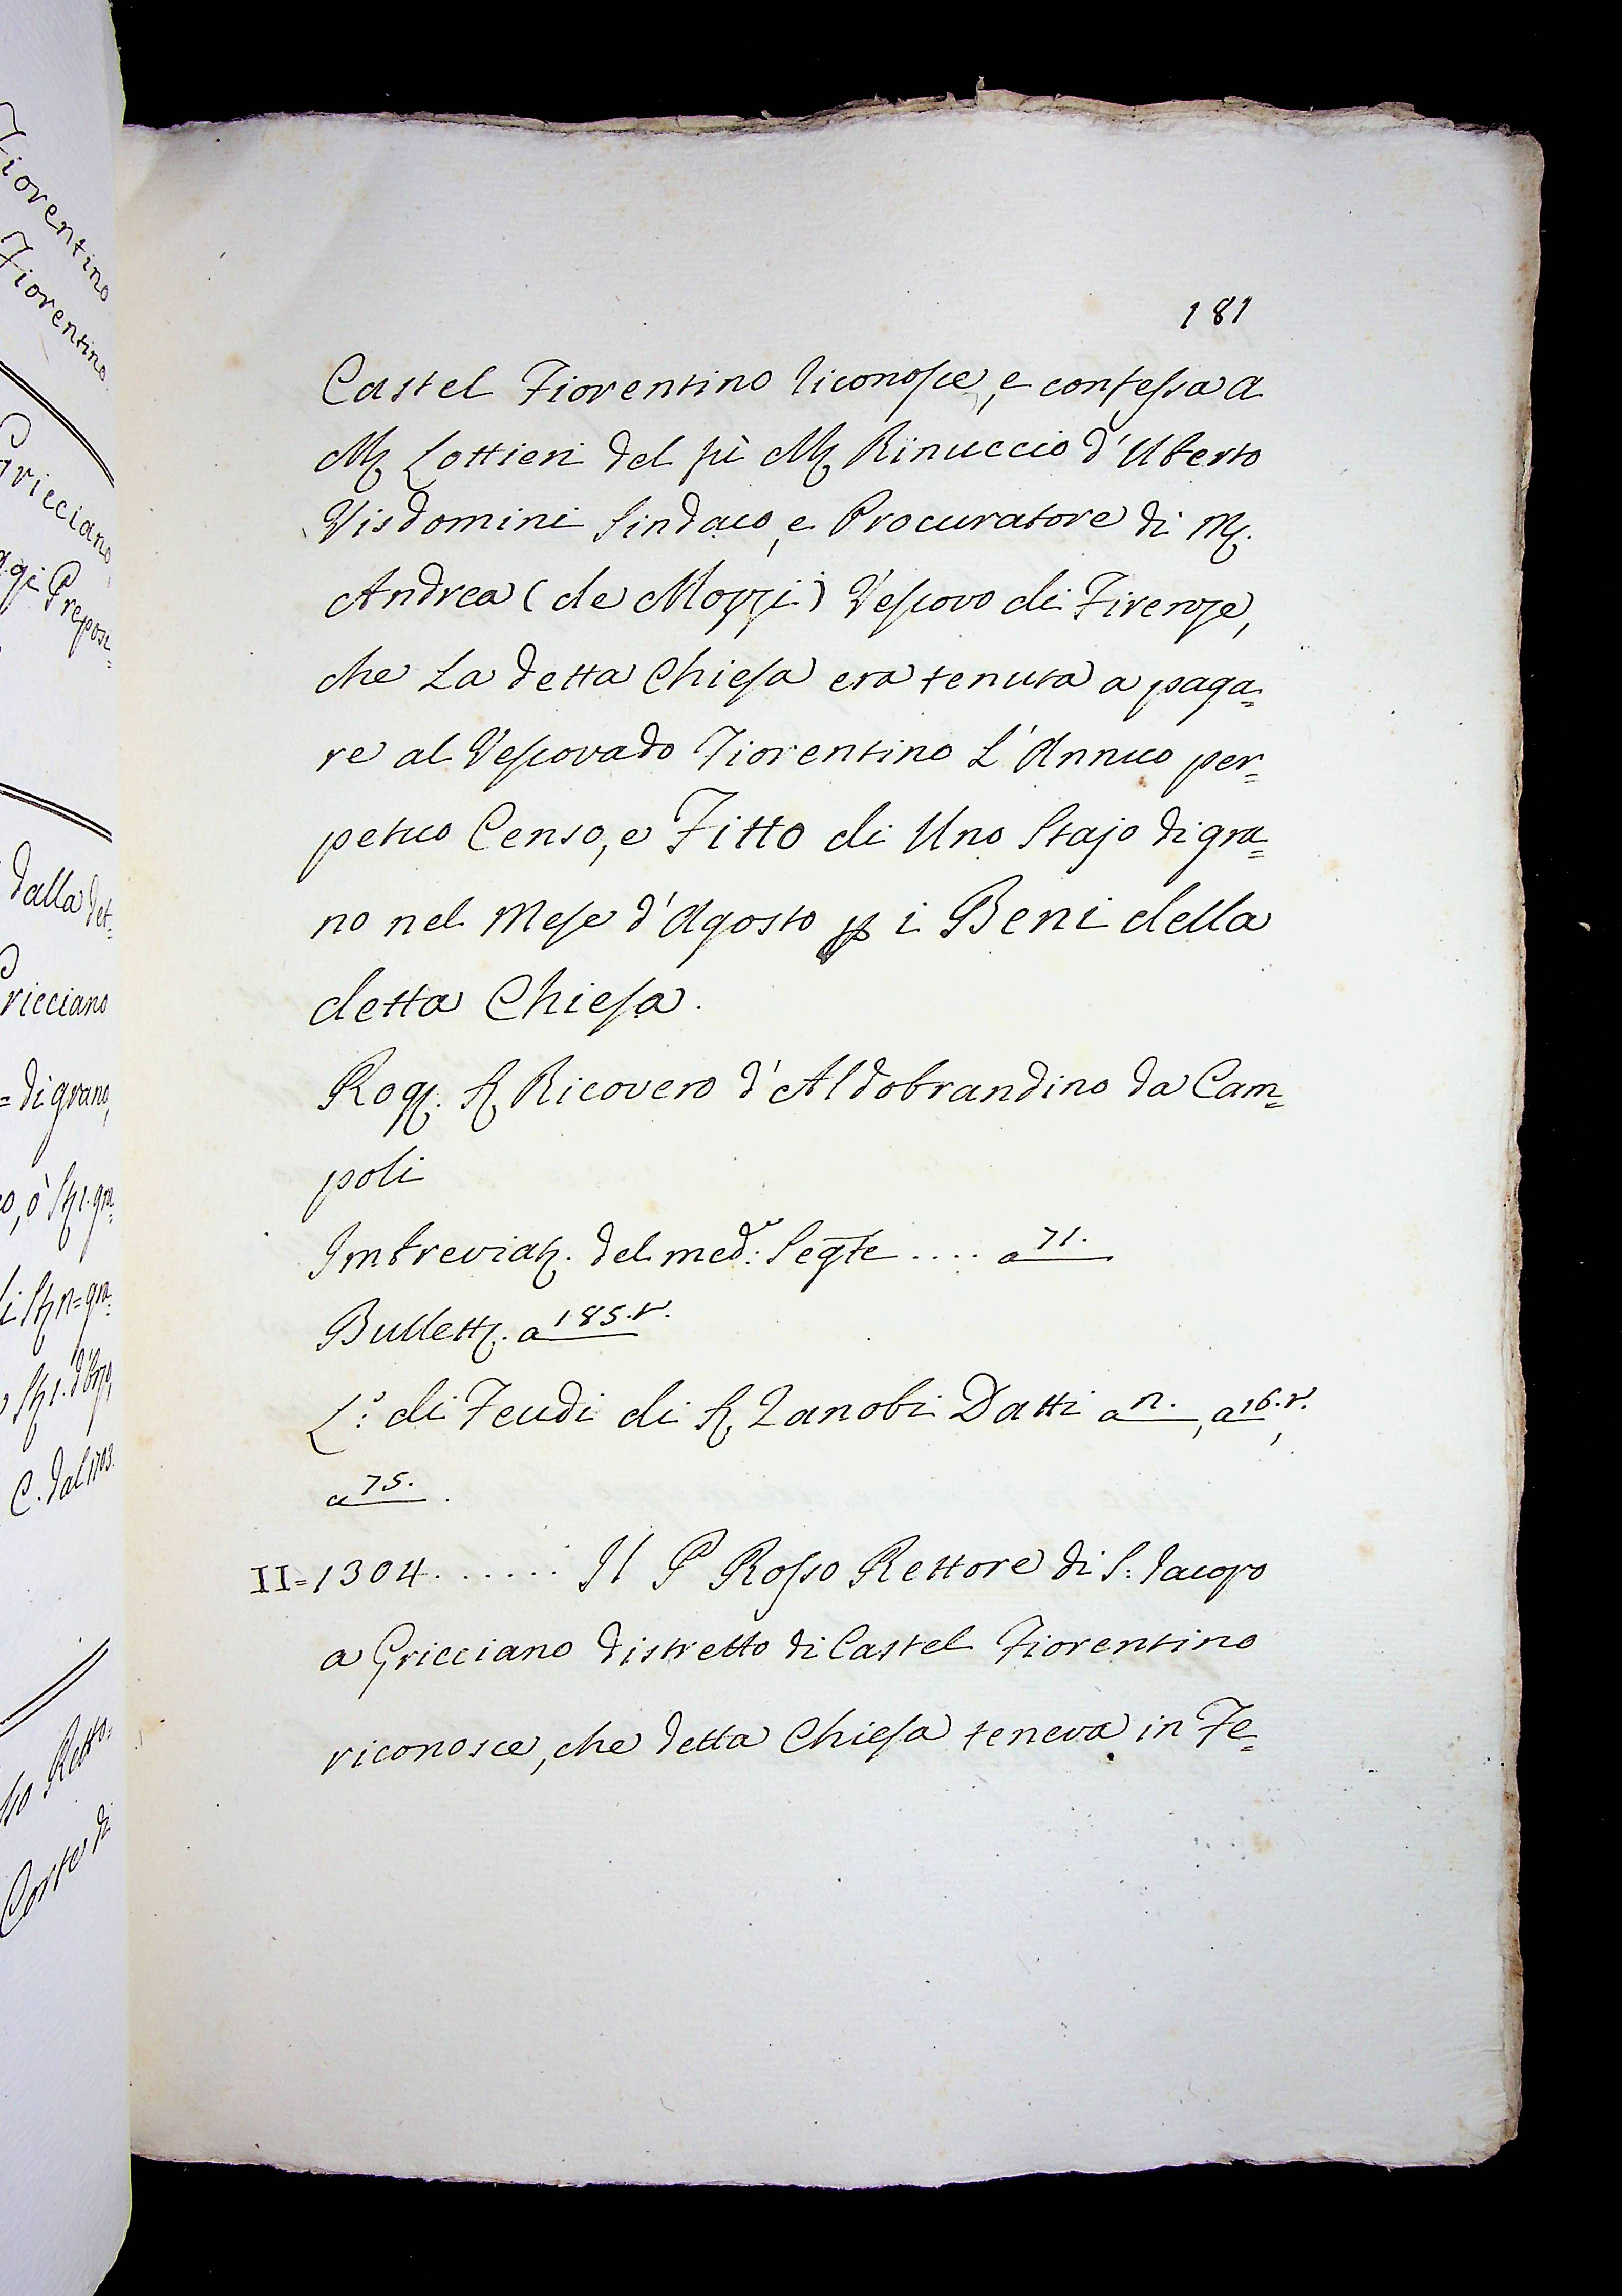 Fiorentino
Fiorentino
Gricciano,
Preposi=
dalla det=
Gricciano
= di grano,
C. dal 1703.
Retto=
Corte di
181
Castel Fiorentino riconosce, e confessa a
Mʒ Lottieri del fù Mʒ Rinuccio d'Uberto
Visdomini Sindaco, e Procuratore di Mʒ.
Andrea (de Mozzi) Vescovo di Firenze,
che La detta Chiesa era tenuta a paga=
re al Vescovado Fiorentino L'Annuo per=
petuo Censo, e Fitto di Uno Stajo di gra=
no nel Mese d'Agosto p i Beni della
detta Chiesa.
Rogʒ. Sʒ Ricovero d'Aldobrandino da Cam=
poli
Imbreviatʒ. del med:º Segte .... a 71.
Bullettʒ. a 185.r.
L:º di Feudi di Sʒ Zanobi Datti a n., a 16.r.,
a 75.
II=1304 ....... Il P Rosso Rettore di S: Iacopo
a Gricciano distretto di Castel Fiorentino
riconosce, che detta Chiesa teneva in Fe=